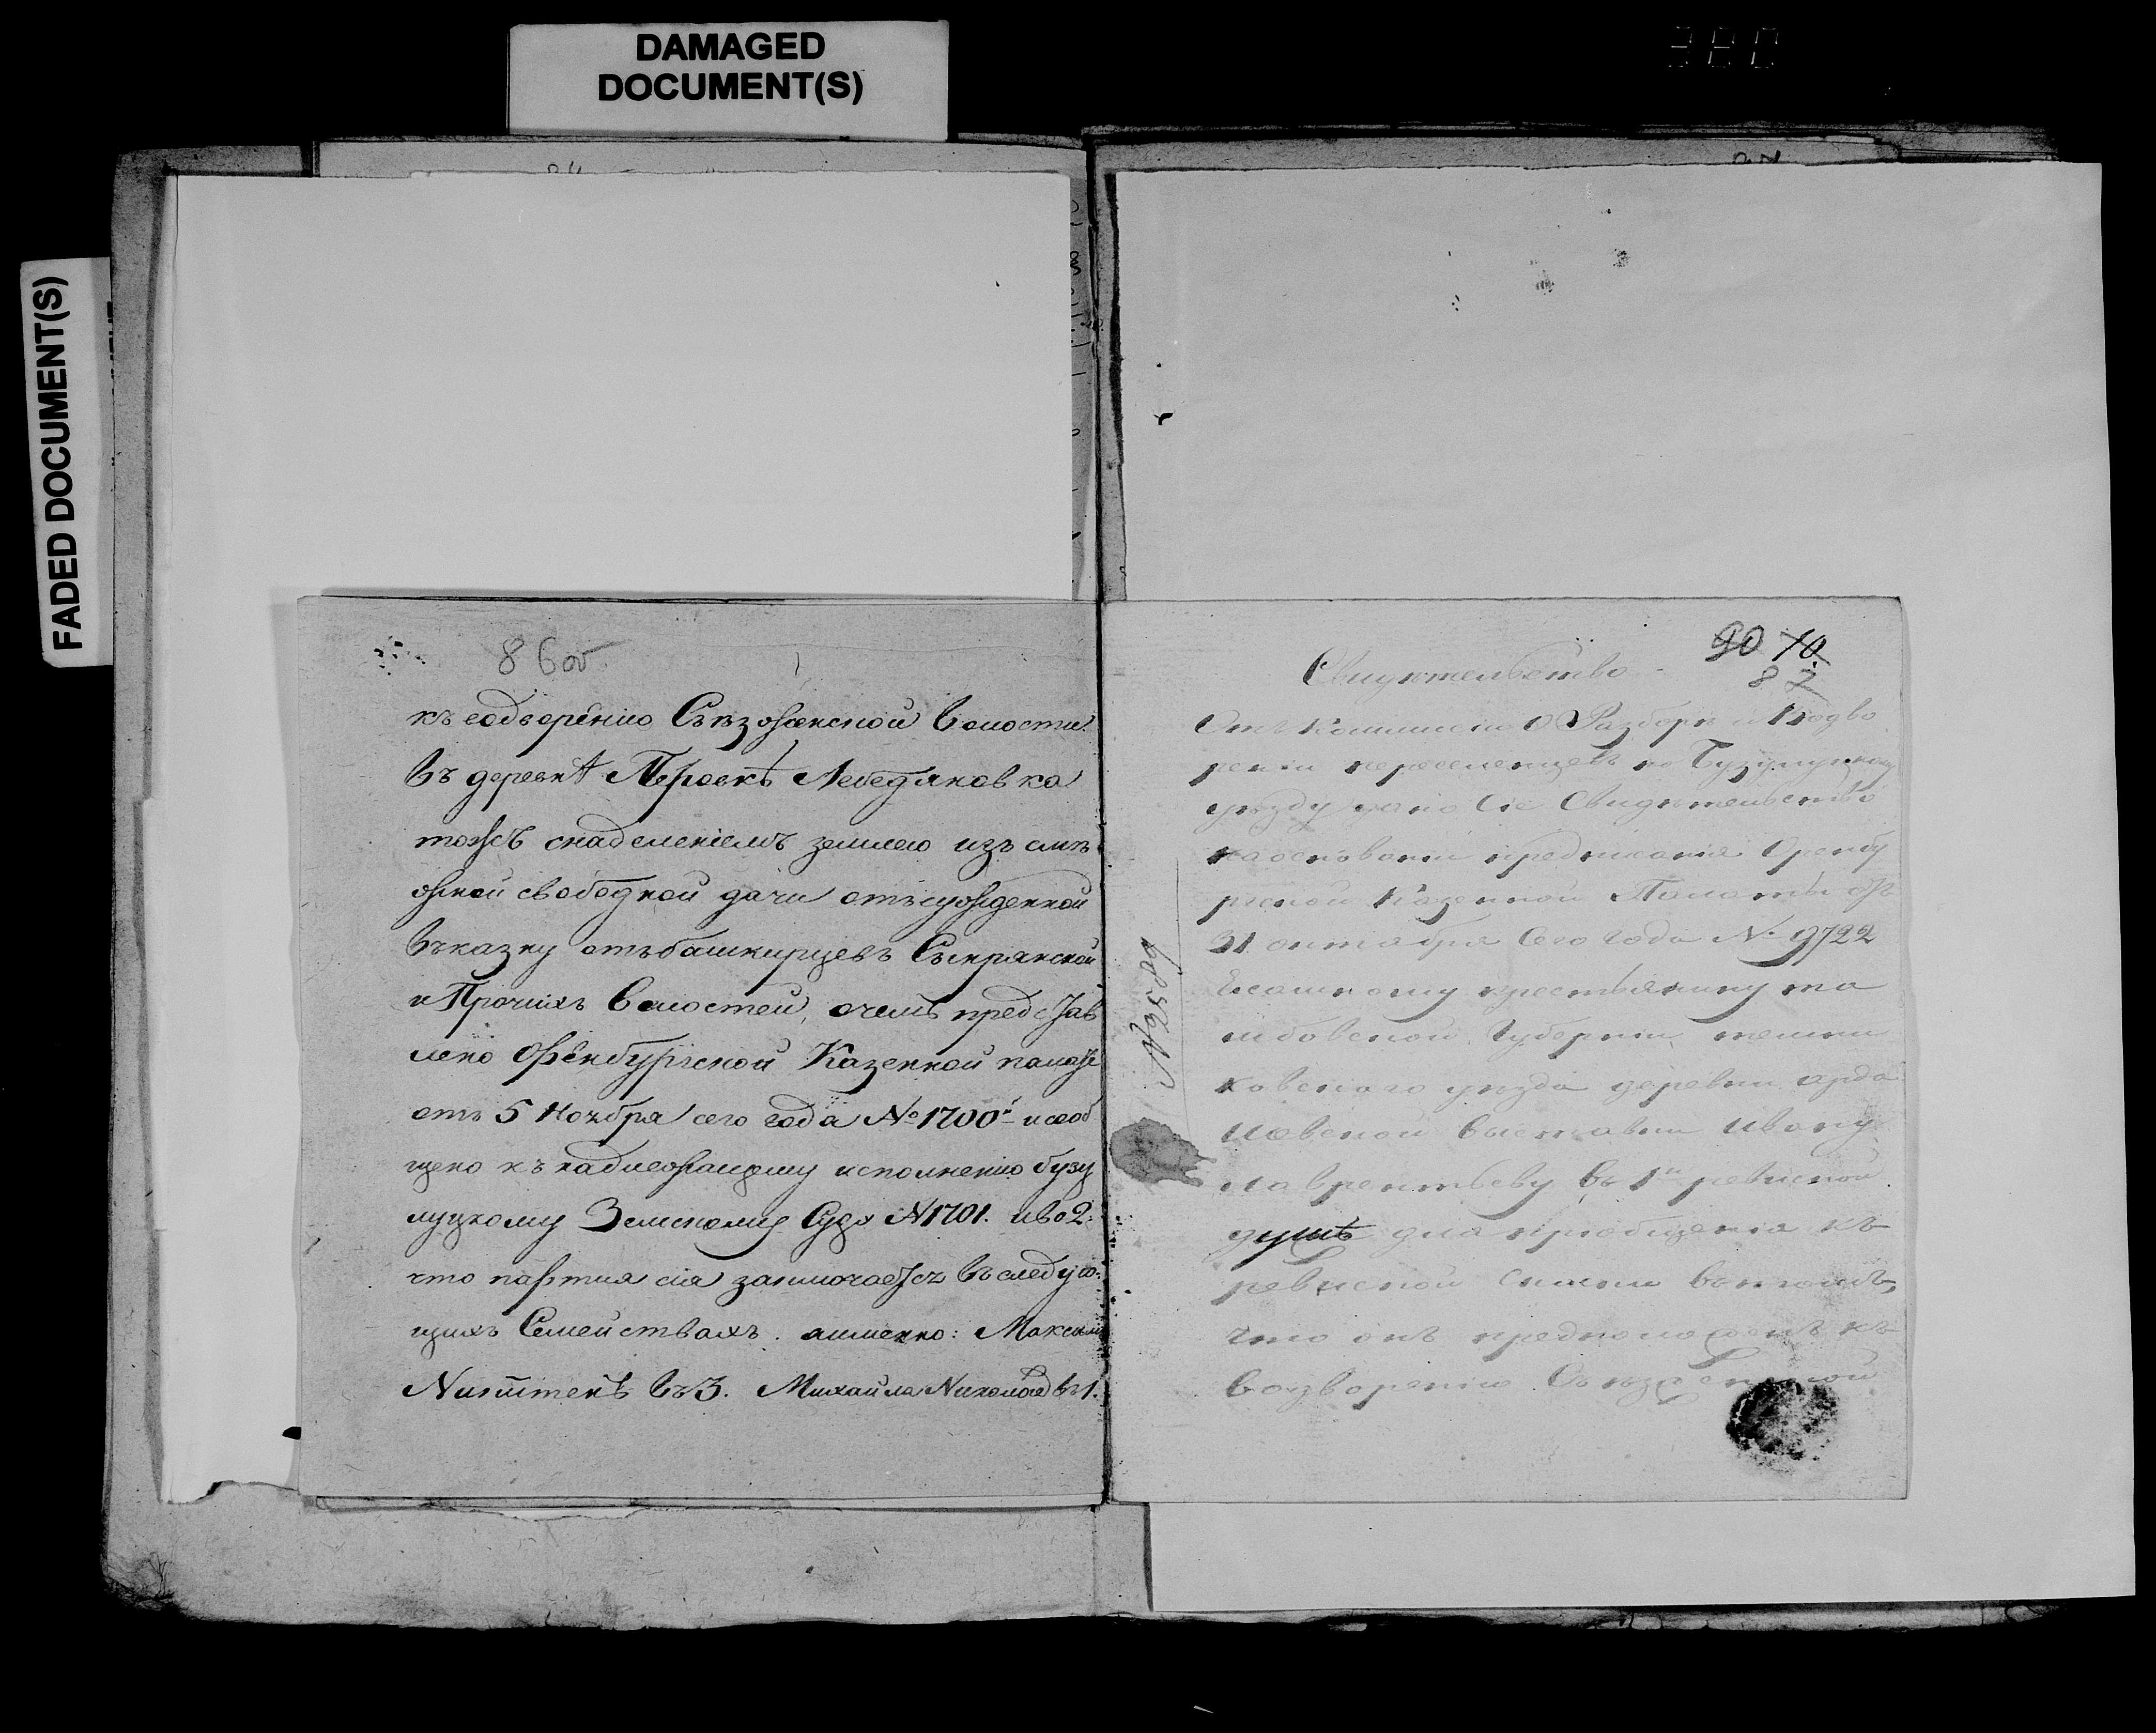 DAMAGED
DOCUMENT(S)
FADED DOCUMENT(S)
86 об.
къ водворенію Съезженской волости
въ деревнѣ Героскѣ Лебедяновка
тожъ снаделеніемъ землею изъ смѣ
жной свободной дачи отсужденной
въ казну отъ башкирцевъ Сынрянской
и Прочихъ волостей, о чемъ представ
лено Оренбургской Казенной палате
отъ 5 Ноября сего года № 1700 и сооб
щено къ надлежащему исполненію бузу
лукскому Земскому Суду № 1701. и во 2.
что партия сия заключается въ следую-
щихъ Семействахъ. а именно: Максим
Никитенѣ въ 3. Михайла Николаев въ 1.
90 10.
87
Свидѣтельство
Отъ Комиссіи О Разборѣ и Подво
реніи переселенцевъ по Бузулуцкому
уезду дано Сіе Свидѣтельство
на основаніи предписанія Оренбу
ргской Казенной Палаты от
31 октября Сего года № 9722
Ясашному крестьянину та
мбовской Губерніи темни
ковскаго уезда деревни арда
шевской выставки Ивану
лаврентьеву въ 1й ревиской
душѣ для пріобщенія къ
ревиской въ томъ,
что онъ предположенъ къ
водворенію Съезженской